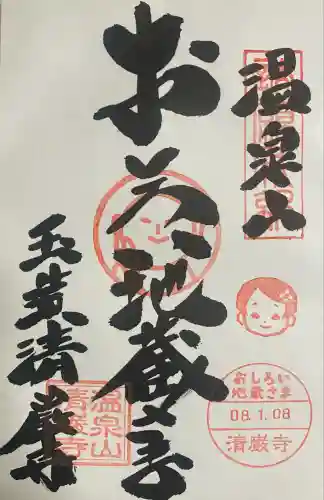 温泉山
お美地蔵尊
玉黄清巌寺
おしろい
地蔵さま
08.1.08
清巌寺
温泉山
清巌寺